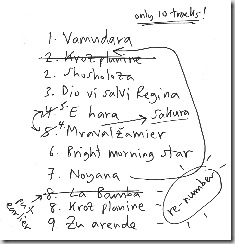 only 10 tracks!
1. Vamudara
2. Kroz planine
2. Shosholoza
3. Dio vi salvi Regina
4. 5. E hara
Sakura
5. 4. Mravalžamier
6. Bright morning star
7. Noyana
8. La Bamba
8. Kroz planine
9 Zu arende
put earlier
re-number